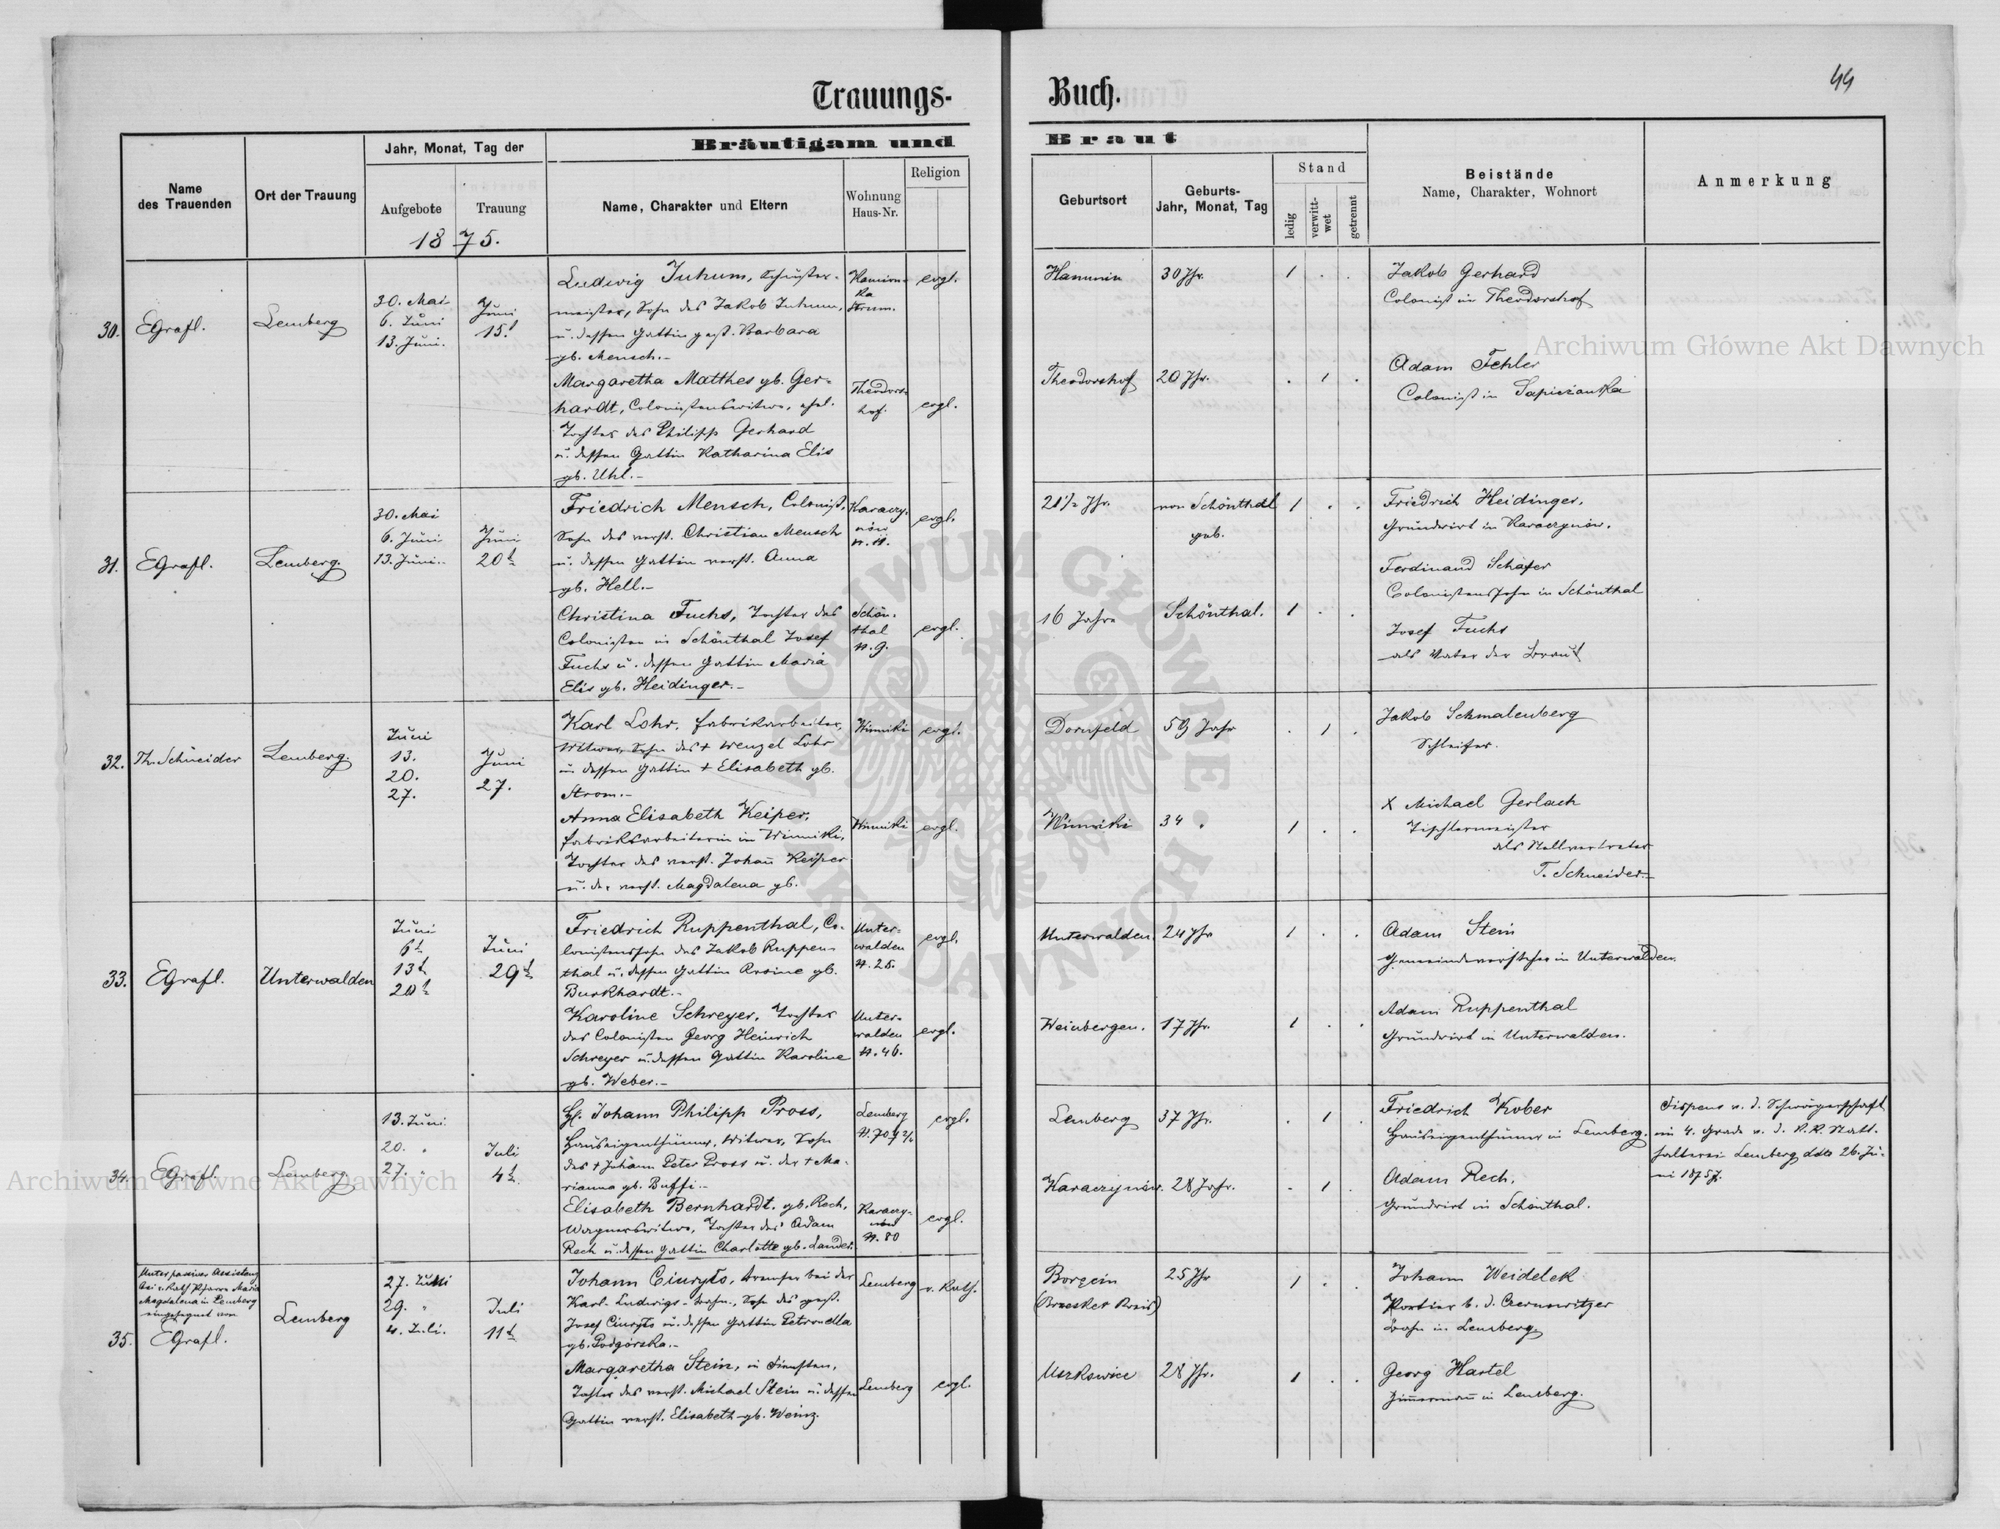 44
Trauungs- Buch.
Bräutigam und Braut
Name des Trauenden
Ort der Trauung
Jahr, Monat, Tag der
Aufgebote
Trauung
1875.
Name, Charakter und Eltern
Wohnung
Haus-Nr.
Religion
Geburtsort
Geburts-
Jahr, Monat, Tag
Stand
ledig
verwitt-
wet
getrennt
Beistände
Name, Charakter, Wohnort
Anmerkung
30.
EGrafl.
Lemberg
30. Mai
6. Juni
13. Juni.
Juni
15t
Ludwig Juhum, Schuster-
meister, Sohn des Jakob Juhum,
u. dessen Gattin gest. Barbara
gb. Mensch.-
Kamion-
ka
Strum.
evgl.
30 Jhr.
1 . .
Jakob Gerhard
Colonist in Theodorshof
Margaretha Matthes gb. Ger-
hardt, Colonistenswitwe, ehel.
Tochter des Philipp Gerhard
u. dessen Gattin Katharina Elis
gb. Uhl.-
Theodors-
hof.
evgl.
Theodorshof
20 Jhr.
. 1 .
Adam Fehler
Colonist in Sapieżanka
31.
EGrafl.
Lemberg.
30. Mai
6. Juni
13. Juni.
Juni
20t
Friedrich Mensch, Colonist,
Sohn des verst. Christian Mensch
u. dessen Gattin verst. Anna
gb. Hell.-
Karaczy-
nów
evgl.
21½ Jhr.
von Schönthal
geb.
1 . .
Friedrich Heidinger,
Grundwirt in Karaczynów.
Ferdinand Schäfer
Colonistensohn in Schönthal
Christina Fuchs, Tochter des
Colonisten in Schönthal Josef
Fuchs u. dessen Gattin Maria
Elis gb. Heidinger.-
Schön-
thal
N. 9.
evgl.
16 Jahre
Schönthal.
1 . .
Josef Fuchs
als Vater der Braut
32.
Th. Schneider
Lemberg.
Juni
13.
20.
27.
Juni
27.
Karl Lohr, Fabrikarbeiter,
Witwer, Sohn des + Wenzel Lohr
u. dessen Gattin + Elisabeth gb.
Strom.-
Winniki
evgl.
Dornfeld
59 Jahr
. 1 .
Jakob Schmalenberg
Schleifer.
Anna Elisabeth Keiper,
Fabriksarbeiterin in Winniki,
Tochter des verst. Johann Keiper
u. der verst. Magdalena gb.
Winniki
evgl.
Winniki
34 "
1 . .
X Michael Gerlach
Tischlermeister
als Stellvertreter
T. Schneider.-
33.
EGrafl.
Unterwalden
Juni
6t
13t
20t
Juni
29t
Friedrich Ruppenthal, Co-
lonistensohn des Jakob Ruppen-
thal u. dessen Gattin Rosine gb.
Burkhardt.-
Unter-
walden
N. 25.
evgl.
Unterwalden.
24 Jhr
1 . .
Adam Stein
Gemeindevorsteher in Unterwalden.
Karoline Schreyer, Tochter
des Colonisten Georg Heinrich
Schreyer u. dessen Gattin Karoline
gb. Weber.-
Unter-
walden
N. 46.
evgl.
Weinbergen.
17 Jhr.
1 . .
Adam Ruppenthal
Grundwirt in Unterwalden.
34.
EGrafl.
Lemberg
13. Juni
20. "
27. "
Juli
4t
H. Johann Philipp Pross,
Hauseigenthümer, Witwer, Sohn
des + Johann Peter Pross u. der + Ma-
rianna gb. Buffi.-
Lemberg
N. 707 2/4
evgl.
Lemberg
37 Jhr.
. 1 .
Friedrich Kober
Hauseigenthümer in Lemberg.
Dispens v. d. Schwägerschaft
im 4. Grade v. d. K.K. Statt-
halterei Lemberg ddto 26. Ju-
ni 1875
Elisabeth Bernhardt, gb. Rech,
Wagnerswitwe, Tochter des Adam
Rech u. dessen Gattin Charlotte gb. Lander.
Karaczy-
nów
N. 80
evgl.
Karaczynów.
28 Jahr.
. 1 .
Adam Rech,
Grundwirt in Schönthal.
35.
Unter passiver Assistenz
Magdalena in Lemberg
eingesegnet von
EGrafl.
Lemberg
27. Juni
29. "
4. Juli.
Juli
11t
Johann Ciuryło, Bremser bei der
Karl-Ludwigs-Bahn, Sohn des gest.
Josef Ciuryło u. dessen Gattin Petronella
gb. Podgórska.-
Lemberg
r. kath.
Borzęcin
(Brzesker Kreis)
25 Jhr
1 . .
Johann Weidelek
Portier b. d. Czernowitzer
Bahn in Lemberg
Margaretha Stein, in Diensten,
Tochter des verst. Michael Stein u. dessen
Gattin verst. Elisabeth gb. Weinz.
Lemberg
evgl.
Uszkowice
28 Jhr.
1 . .
Georg Hartel
Zimmermann in Lemberg.
Archiwum Główne Akt Dawnych
Archiwum Główne Akt Dawnych
ARCHIWUM GŁÓWNE AKT DAWNYCH